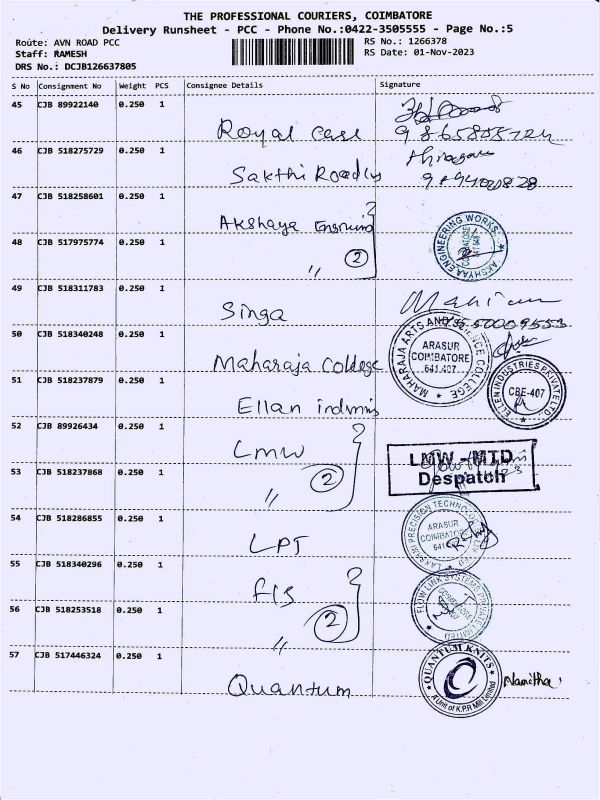 THE PROFESSIONAL COURIERS, COIMBATORE
Delivery Runsheet - PCC - Phone No.:0422-3505555 - Page No.:5
Route: AVN ROAD PCC
Staff: RAMESH
DRS No.: DCJB126637805
RS No.: 1266378
RS Date: 01-Nov-2023
S No Consignment No Weight PCS Consignee Details Signature
45 CJB 89922140 0.250 1
Royal Case
46 CJB 518275729 0.250 1
Sakthi
47 CJB 518258601 0.250 1
Akshaya
AKSHYAA ENGINEERING WORKS
COIMBATORE
48 CJB 517975774 0.250 1
〃 2
49 CJB 518311783 0.250 1
Singa
50 CJB 518340248 0.250 1
Maharaja College
MAHARAJA ARTS AND SCIENCE COLLEGE
ARASUR
COIMBATORE
641 407
51 CJB 518237879 0.250 1
Ellan
ELLEN INDUSTRIES PRIVATE LTD.
CBE-407
52 CJB 89926434 0.250 1
LMW
LMW - MTD
Despatch
53 CJB 518237868 0.250 1
〃 2
54 CJB 518286855 0.250 1
LPT
ARASUR
COIMBATORE
55 CJB 518340296 0.250 1
FLS
FLOW LINK SYSTEMS PRIVATE LIMITED
56 CJB 518253518 0.250 1
〃 2
57 CJB 517446324 0.250 1
Quantum
QUANTUM KNITS
A Unit of K.P.R Mill Limited
Namitha